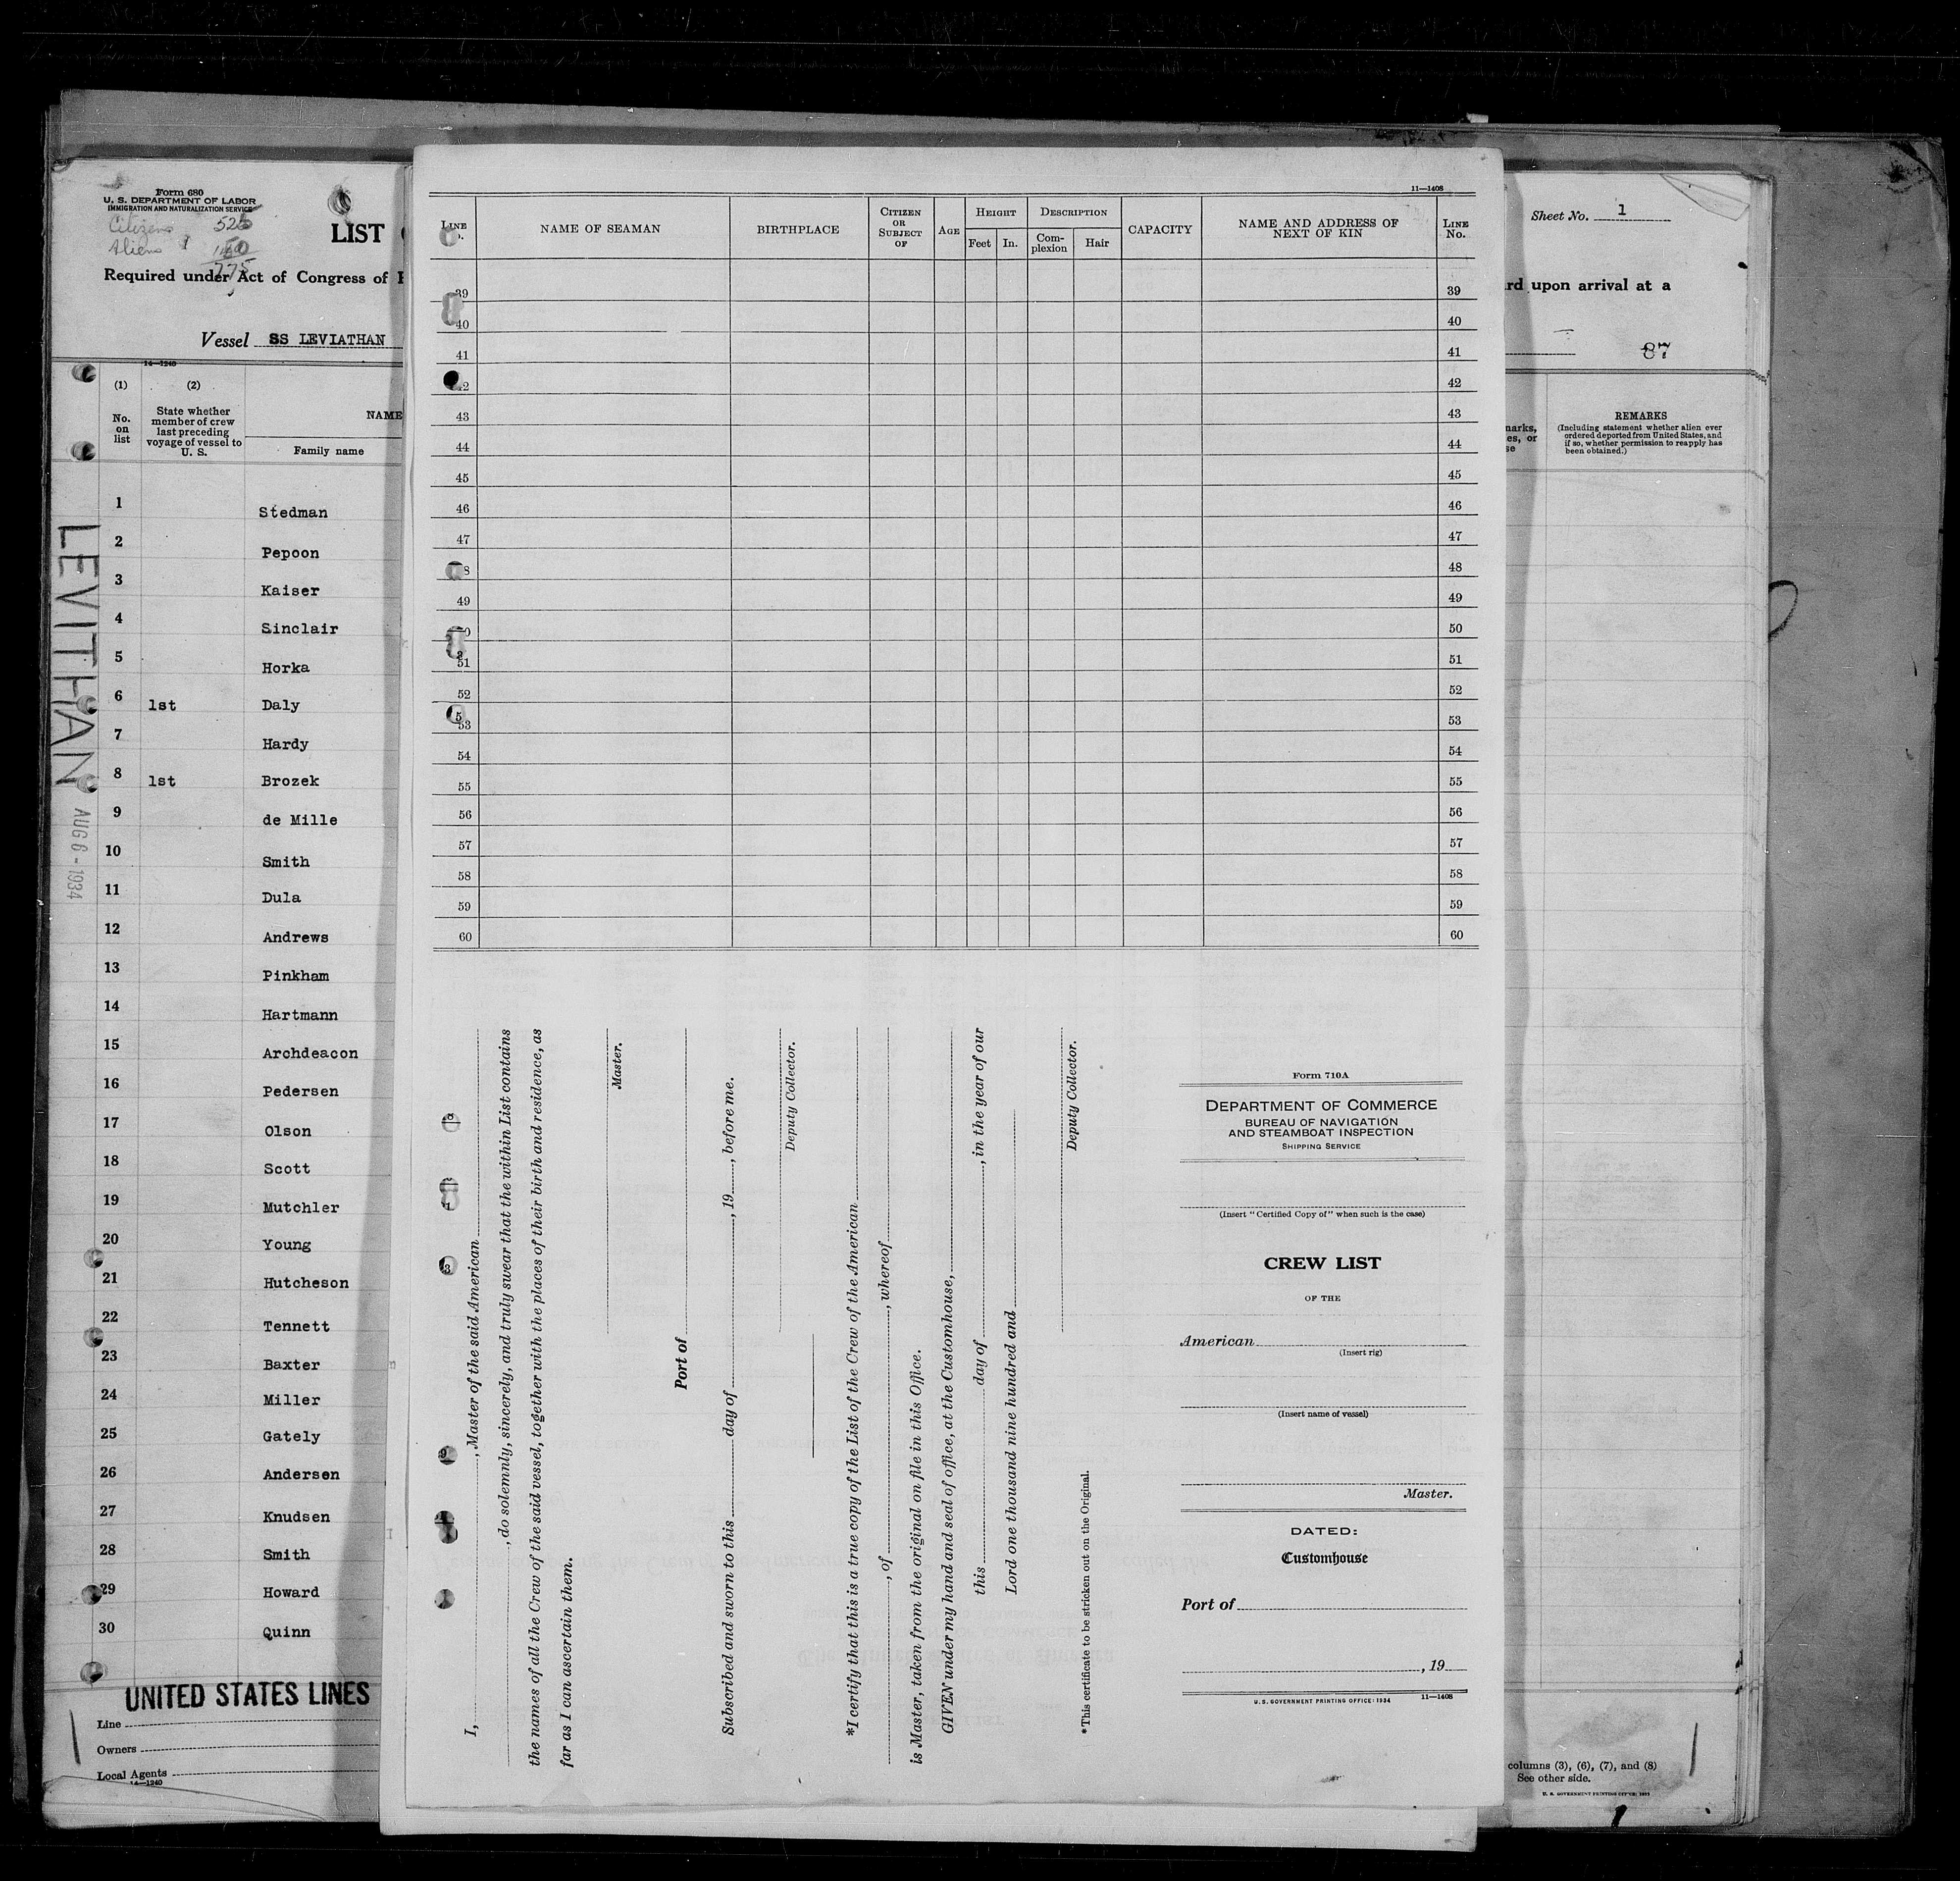 Form 680
U. S. DEPARTMENT OF LABOR
IMMIGRATION AND NATURALIZATION SERVICE
Citizens 525
Aliens
775
LIST
Required under Act of Congress of
Vessel SS LEVIATHAN
14—1240
(1) (2)
No. on list
State whether member of crew last preceding voyage of vessel to U. S.
NAME
Family name
1 Stedman
2 Pepoon
3 Kaiser
4 Sinclair
5 Horka
6 1st Daly
7 Hardy
8 1st Brozek
9 de Mille
10 Smith
11 Dula
12 Andrews
13 Pinkham
14 Hartmann
15 Archdeacon
16 Pedersen
17 Olson
18 Scott
19 Mutchler
20 Young
21 Hutcheson
22 Tennett
23 Baxter
24 Miller
25 Gately
26 Andersen
27 Knudsen
28 Smith
29 Howard
30 Quinn
UNITED STATES LINES
Line
Owners
Local Agents
14—1240
LEVITHAN
AUG 6 - 1934
11—1408
LINE NAME OF SEAMAN BIRTHPLACE CITIZEN OR SUBJECT OF AGE HEIGHT Feet In. DESCRIPTION Complexion Hair CAPACITY NAME AND ADDRESS OF NEXT OF KIN LINE No.
39 39
40 40
41 41
42
43 43
44 44
45 45
46 46
47 47
48
49 49
50
51 51
52 52
53 53
54 54
55 55
56 56
57 57
58 58
59 59
60 60
I, , Master of the said American
, do solemnly, sincerely, and truly swear that the within List contains
the names of all the Crew of the said vessel, together with the places of their birth and residence, as
far as I can ascertain them.
Master.
Port of
Subscribed and sworn to this day of , 19 , before me.
Deputy Collector.
*I certify that this is a true copy of the List of the Crew of the American
, of , whereof
is Master, taken from the original on file in this Office.
GIVEN under my hand and seal of office, at the Customhouse,
this day of , in the year of our
Lord one thousand nine hundred and
Deputy Collector.
*This certificate to be stricken out on the Original.
Form 710A
DEPARTMENT OF COMMERCE
BUREAU OF NAVIGATION
AND STEAMBOAT INSPECTION
SHIPPING SERVICE
(Insert "Certified Copy of" when such is the case)
CREW LIST
OF THE
American
(Insert rig)
(Insert name of vessel)
Master.
DATED:
Customhouse
Port of
, 19
U. S. GOVERNMENT PRINTING OFFICE: 1934 11—1408
Sheet No. 1
upon arrival at a
87
REMARKS
(Including statement whether alien ever
ordered deported from United States, and
if so, whether permission to reapply has
been obtained.)
columns (3), (6), (7), and (8)
See other side.